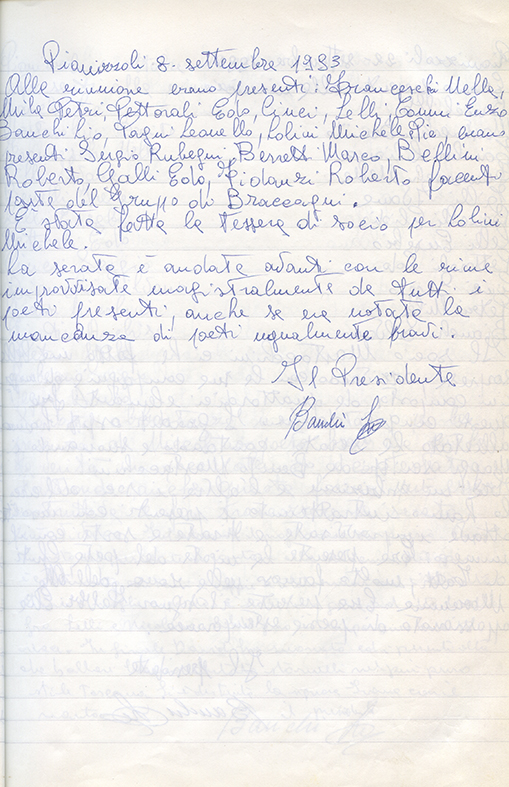 Pianizzoli 8. settembre 1993
Alla riunione erano presenti: Franceschi Mello,
Mila Petri, Pettorali Edo, Cinci, Lelli, Comni Enzo
Banchi Lio, Tagni Leanello, Lolini Michele, Pie, erano
presenti Sergio Rubegni, Berretti Marco, Bellini
Roberto, Galli Edo, Fidanzi Roberto facenti
parte del Gruppo di Braccagni.
È stata fatta la tessera di socio per Lolini
Michele.
La serata è andata avanti con le rime
improvvisate magistralmente da tutti i
poeti presenti, anche se era notata la
mancanza di poeti ugualmente bravi.
Il Presidente
Banchi